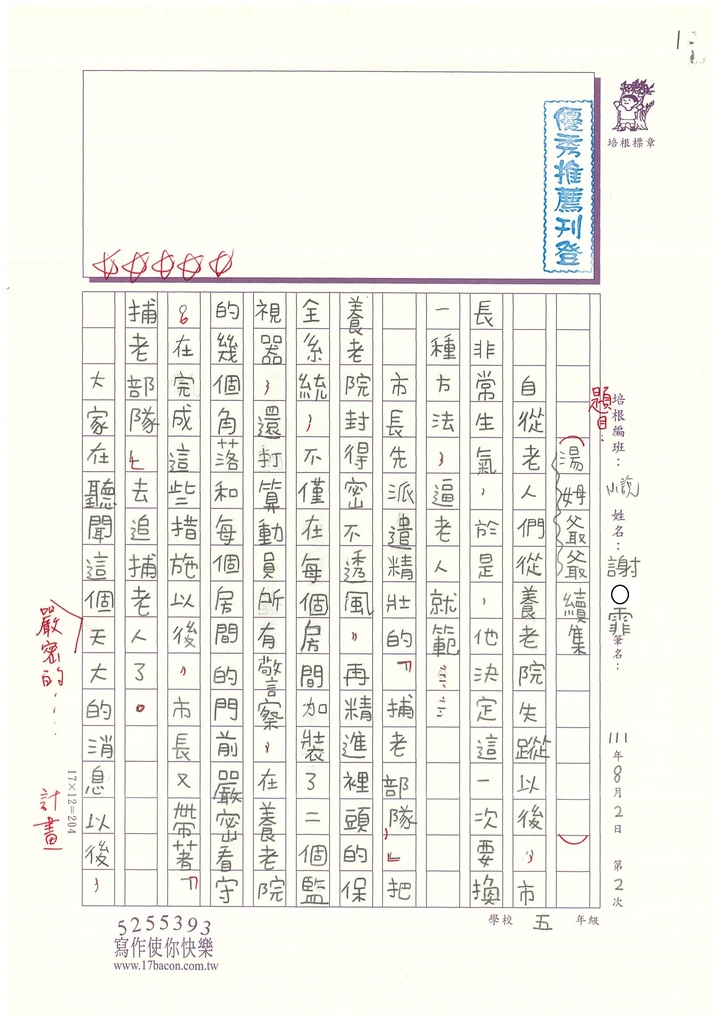 1-1
培根標章
優秀推薦刊登
培根編班：小說 姓名：謝○霏 筆名： 111年8月2日 第2次
題目：
湯姆爺爺續集
自從老人們從養老院失蹤以後，市
長非常生氣，於是，他決定這一次要換
一種方法，逼老人就範……
市長先派遣精壯的『捕老部隊，』把
養老院封得密不透風，再精進裡頭的保
全系統，不僅在每個房間加裝了二個監
視器，還打算動員所有警察，在養老院
的幾個角落和每個房間的門前嚴密看守
。在完成這些措施以後，市長又帶著『
捕老部隊』去追捕老人了。
大家在聽聞這個天大的消息以後，
嚴密的……計畫
17×12=204
學校 五 年級
5255393
寫作使你快樂
www.17bacon.com.tw